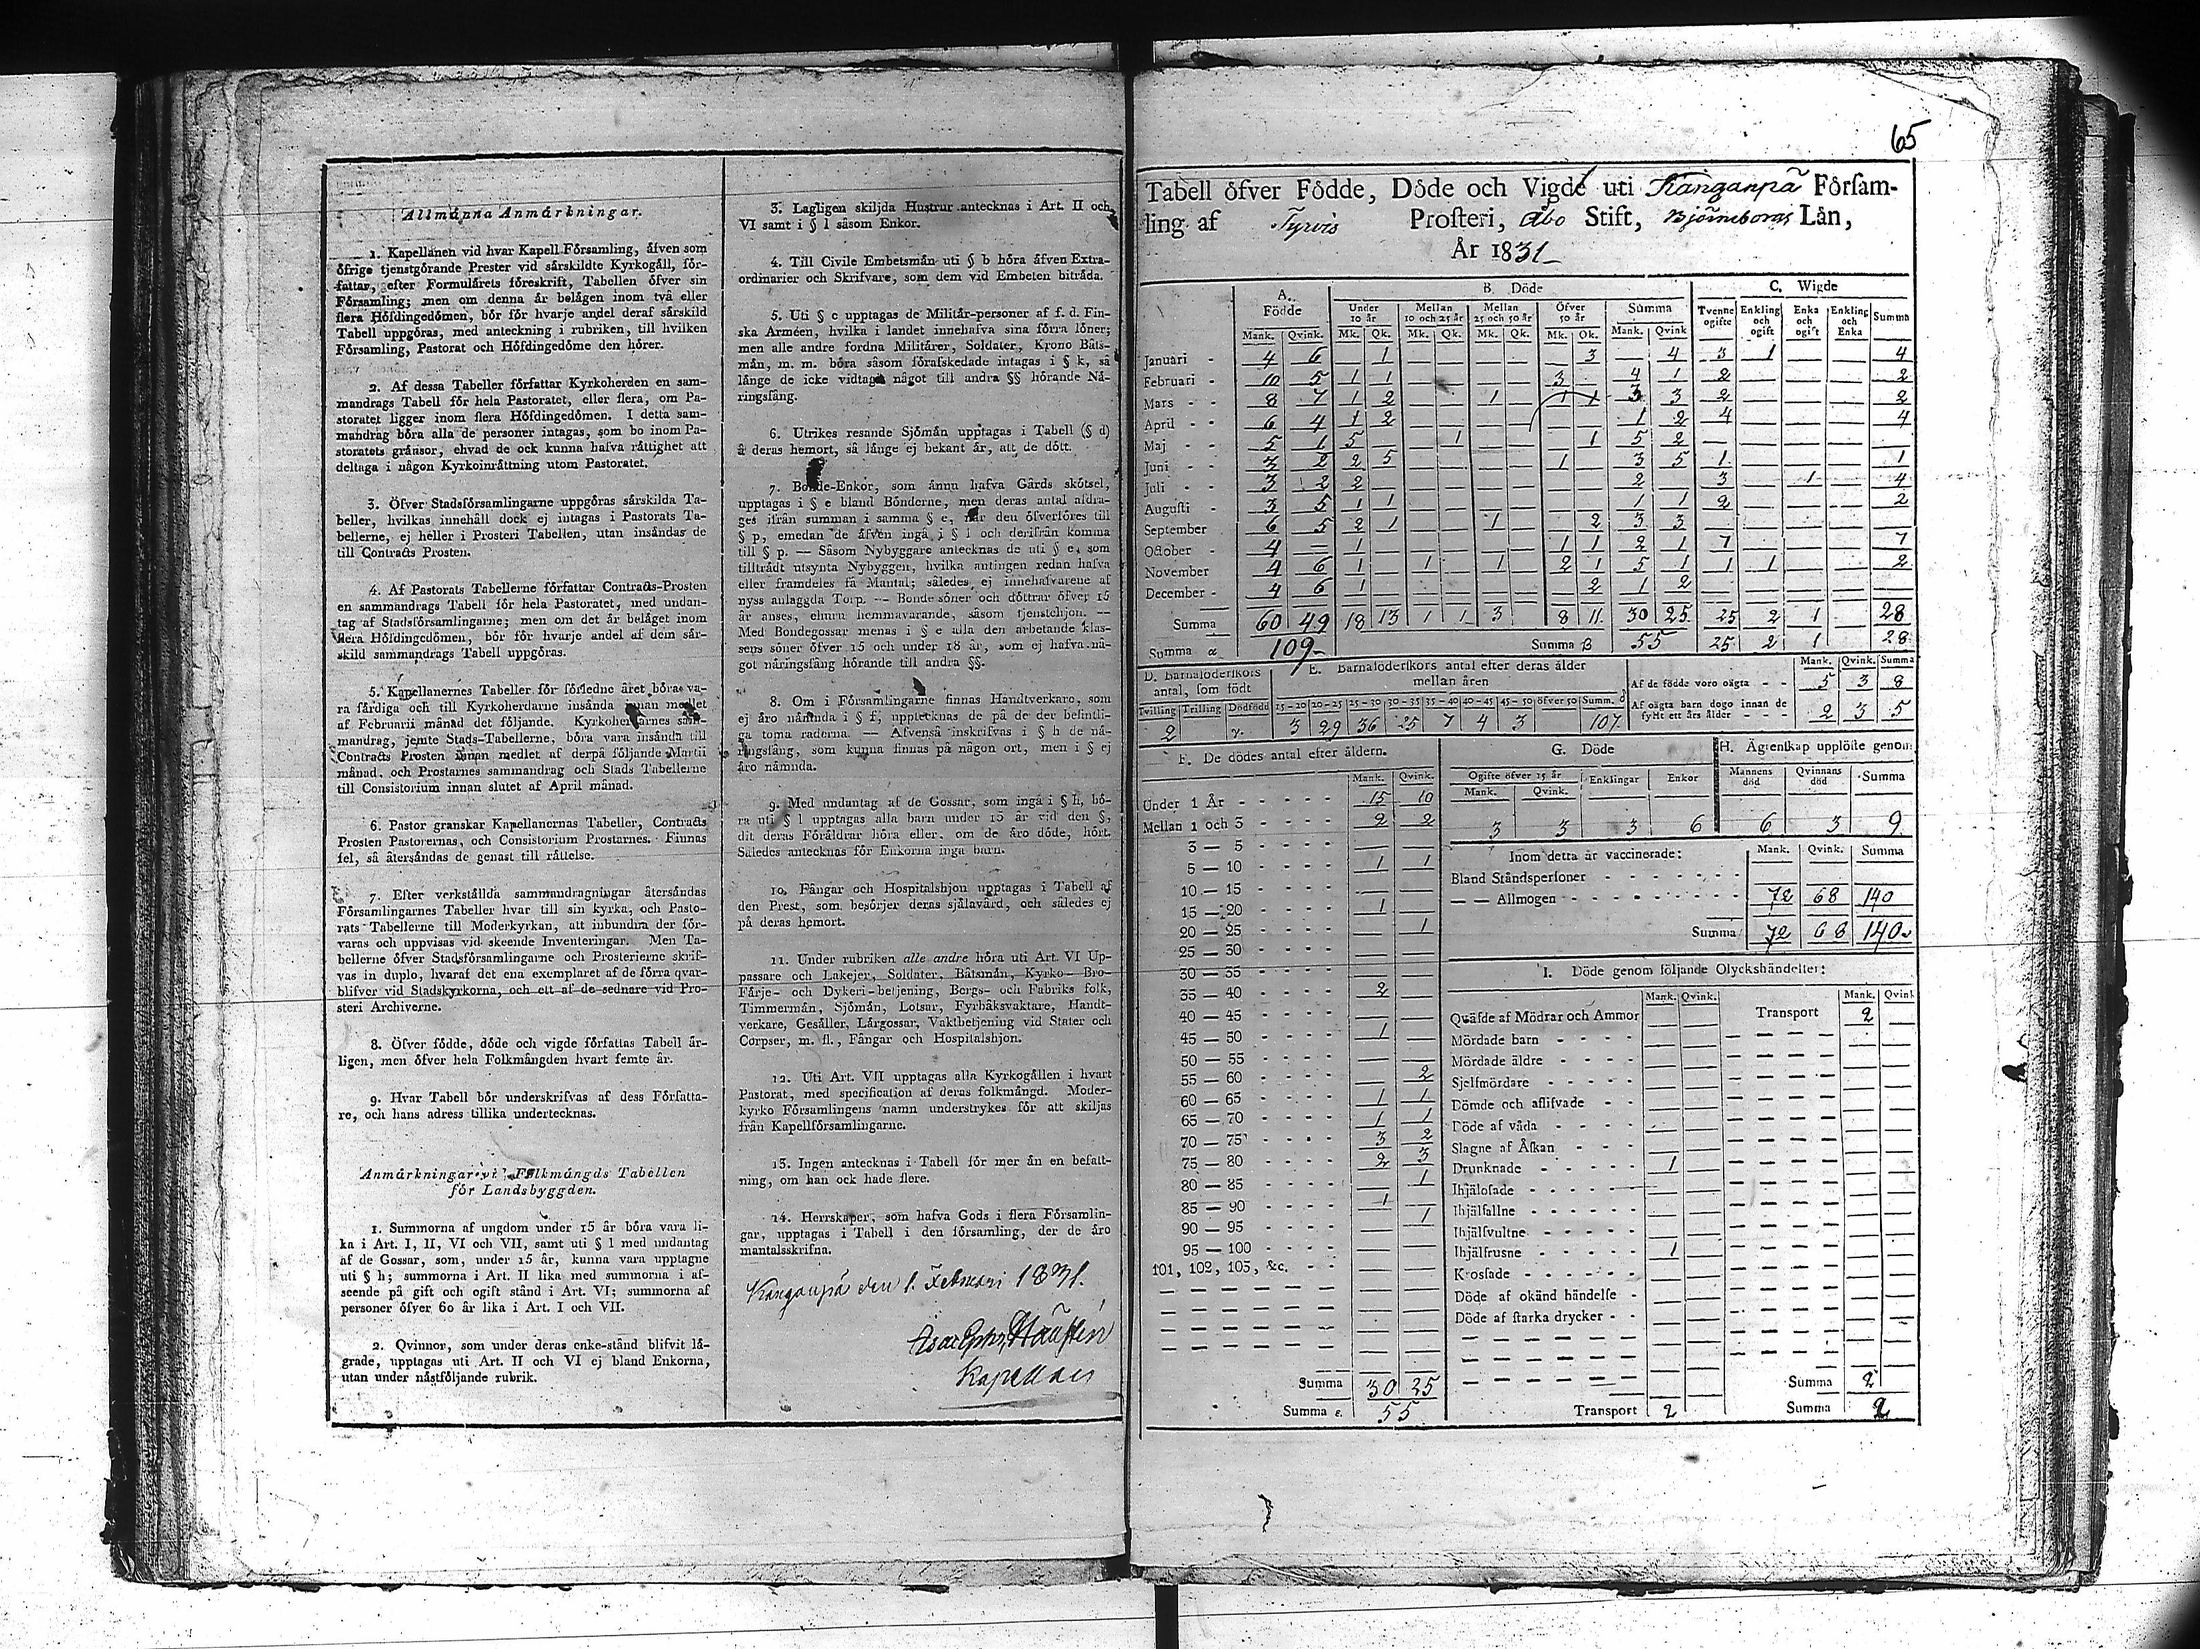 Allmänna Anmärkningar.
1. Kapellanen vid hvar Kapell Församling, äfven som
öfrige tjenstgörande Prester vid särskildte Kyrkogäll, för-
fattar, efter Formulärets föreskrift, Tabellen öfver sin
Församling; men om denna är belägen inom två eller
flera Höfdingedömen, bör för hvarje andel deraf särskild
Tabell uppgöras, med anteckning i rubriken, till hvilken
Församling, Pastorat och Höfdingedöme den hörer.
2. Af dessa Tabeller författar Kyrkoherden en sam-
mandrags Tabell för hela Pastoratet, eller flera, om Pa-
storatet ligger inom flera Höfdingedömen. I detta sam-
mandrag böra alla de personer intagas, som bo inom Pa-
storatets gränsor, ehvad de ock kunna hafva rättighet att
deltaga i någon Kyrkoinrättning utom Pastoratet.
3. Öfver Stadsförsamlingarne uppgöras särskilda Ta-
beller, hvilkas innehåll dock ej intagas i Pastorats Ta-
bellerne, ej heller i Prosteri Tabellen, utan insändas de
till Contracts Prosten.
4. Af Pastorats Tabellerne författar Contracts-Prosten
en sammandrags Tabell för hela Pastoratet, med undan-
tag af Stadsförsamlingarne; men om det är beläget inom
flera Höfdingedömen, bör för hvarje andel af dem sär-
skild sammandrags Tabell uppgöras.
5. Kapellanernes Tabeller för förfledne året böra va-
ra färdiga och till Kyrkoherdarne insända innan medlet
af Februarii månad det följande. Kyrkoherdarnes sam-
mandrag, jemte Stads-Tabellerne, böra vara insända till
Contracts Prosten innan medlet af derpå följande Martii
månad, och Prostarnes sammandrag och Stads Tabellerne
till Consistorium innan slutet af April månad.
6. Pastor granskar Kapellanernas Tabeller, Contracts
Prosten Pastorernas, och Consistorium Prostarnes. Finnas
fel, så återsändas de genast till rättelse.
7. Efter verkställda sammandragningar återsändas
Församlingarnes Tabeller hvar till sin kyrka, och Pasto-
rats Tabellerne till Moderkyrkan, att inbundna der för-
varas och uppvisas vid skeende Inventeringar. Men Ta-
bellerne öfver Stadsförsamlingarne och Prosterierne skrif-
vas in duplo, hvaraf det ena exemplaret af de förra qvar-
blifver vid Stadskyrkorna, och ett af de sednare vid Pro-
steri Archiverne.
8. Öfver födde, döde och vigde författas Tabell år-
ligen, men öfver hela Folkmängden hvart femte år.
9. Hvar Tabell bör underskrifvas af dess Författa-
re, och hans adress tillika undertecknas.
Anmärkningar vid Folkmängds Tabellen
för Landsbyggden.
1. Summorna af ungdom under 15 år böra vara li-
ka i Art. I, II, VI och VII, samt uti § l med undantag
af de Gossar, som, under 15 år, kunna vara upptagne
uti § h; summorna i Art. II lika med summorna i af-
seende på gift och ogift stånd i Art. VI; summorna af
personer öfver 60 år lika i Art. I och VII.
2. Qvinnor, som under deras enke-stånd blifvit lä-
grade, upptagas uti Art. II och VI ej bland Enkorna,
utan under nästföljande rubrik.
3. Lagligen skiljda Hustrur antecknas i Art. II och
VI samt i § l såsom Enkor.
4. Till Civile Embetsmän uti § b höra äfven Extra-
ordinarier och Skrifvare, som dem vid Embeten biträda.
5. Uti § c upptagas de Militär-personer af f. d. Fin-
ska Arméen, hvilka i landet innehafva sina förra löner;
men alle andre fordna Militärer, Soldater, Krono Båts-
män, m. m. böra såsom förafskedade intagas i § k, så
länge de icke vidtaga något till andra §§ hörande Nä-
ringsfång.
6. Utrikes resande Sjömän upptagas i Tabell (§ d)
å deras hemort, så länge ej bekant är, att de dött.
7. Bonde-Enkor, som ännu hafva Gårds skötsel,
upptagas i § e bland Bönderne, men deras antal afdra-
ges ifrån summan i samma § e, när den öfverföres till
§ p, emedan de äfven ingå i § l och derifrån komma
till § p. — Såsom Nybyggare antecknas de uti § e, som
tillträdt utsynta Nybyggen, hvilka antingen redan hafva
eller framdeles få Mantal; således ej innehafvarene af
nyss anlaggda Torp. — Bonde söner och döttrar öfver 15
år anses, ehuru hemmavarande, såsom tjenstehjon. —
Med Bondegossar menas i § e alla den arbetande klas-
sens söner öfver 15 och under 18 år, som ej hafva nå-
got näringsfång hörande till andra §§.
8. Om i Församlingarne finnas Handtverkare, som
ej äro nämnda i § f, uppteknas de på de der befintli-
ga toma raderna. — Äfvenså inskrifvas i § h de nä-
ringsfång, som kunna finnas på någon ort, men i § ej
äro nämnda.
9. Med undantag af de Gossar, som ingå i § h, bö-
ra uti § l upptagas alla barn under 15 år vid den §,
dit deras Föräldrar höra eller, om de äro döde, hört.
Således antecknas för Enkorna inga barn.
10. Fångar och Hospitalshjon upptagas i Tabell af
den Prest, som besörjer deras själavård, och således ej
på deras hemort.
11. Under rubriken alle andre höra uti Art. VI Up-
passare och Lakejer, Soldater, Båtsmän, Kyrko- Bro-
Färje- och Dykeri-betjening, Bergs- och Fabriks folk,
Timmermän, Sjömän, Lotsar, Fyrbåksvaktare, Handt-
verkare, Gesäller, Lärgossar, Vaktbetjening vid Stater och
Corpser, m. fl., Fångar och Hospitalshjon.
12. Uti Art. VII upptagas alla Kyrkogällen i hvart
Pastorat, med specification af deras folkmängd. Moder-
kyrko Församlingens namn understrykes för att skiljas
från Kapellförsamlingarne.
13. Ingen antecknas i Tabell för mer än en befatt-
ning, om han ock hade flere.
14. Herrskaper, som hafva Gods i flera Församlin-
gar, upptagas i Tabell i den församling, der de äro
mantalsskrifna.
Kanganpä den 1. Februari 1831.
Kapellan
65
Tabell öfver Födde, Döde och Vigde uti Kanganpä Försam-
ling af Tyrvis Prosteri, Åbo Stift, Björneborgs Län,
År 1831
A. Födde B. Döde C. Wigde
Under 10 år Mellan 10 och 25 år Mellan 25 och 50 år Öfver 50 år Summa Tvenne ogifte Enkling och ogift Enka och ogift Enkling och Enka Summa
Mank. Qvink. Mk. Qk. Mk. Qk. Mk. Qk. Mk. Qk. Mank. Qvink
Januari - 4 6 — 1 — — — — — 3 — 4 3 1 — — 4
Februari - 10 5 1 1 — — — — 3 — 4 1 2 — — — 2
Mars - - 8 7 1 2 — — 1 — 1 1 3 3 2 — — — 2
April - - 6 4 1 2 — — — — 1 2 4 — — — 4
Maj - - 5 1 5 — — 1 — — — 1 5 2 — — — — —
Juni - - 3 2 2 5 — — — — 1 — 3 5 1 — — — 1
Juli - - 3 2 2 — — — — — — — 2 — 3 — 1 — 4
Augusti - 3 5 1 1 — — — — — — 1 1 2 — — — 2
September 6 5 2 1 — — 1 — — 2 3 3 — — — — —
October - 4 — 1 — — — — — 1 1 2 1 7 — — — 7
November 4 6 1 — 1 — 1 — 2 1 5 1 1 1 — — 2
December - 4 6 1 — — — — — — 2 1 2 — — — — —
Summa 60 49 18 13 1 1 3 8 11 30 25 25 2 1 28
Summa α 109 Summa B 55 25 2 1 28
D. Barnaföderskors antal, som födt
Tvilling Trilling Dödfödd
2
E. Barnaföderskors antal efter deras ålder
mellan åren
15—20 20—25 25—30 30—35 35—40 40—45 45—50 öfver 50 Summ. δ
3 29 36 25 7 4 3 107
Mank. Qvink. Summa
Af de födde voro oägta - - 5 3 8
Af oägta barn dogo innan de
fyllt ett års ålder - - 2 3 5
F. De dödes antal efter åldern.
Mank. Qvink.
Under 1 År - - - - - 15 10
Mellan 1 och 3 - - - - 2 2
3 — 5 - - - - — —
5 — 10 - - - - 1 1
10 — 15 - - - - — —
15 — 20 - - - - 1 —
20 — 25 - - - - — 1
25 — 30 - - - - — —
30 — 35 - - - - — —
35 — 40 - - - - 2 —
40 — 45 - - - - — —
45 — 50 - - - - 1 —
50 — 55 - - - - — —
55 — 60 - - - - — 2
60 — 65 - - - - 1 1
65 — 70 - - - - 1 1
70 — 75 - - - - 3 2
75 — 80 - - - - 2 3
80 — 85 - - - - — 1
85 — 90 - - - - 1 —
90 — 95 - - - - — 1
95 — 100 - - - - — —
101, 102, 103, &c. - - — —
Summa 30 25
Summa ε. 55
G. Döde
Ogifte öfver 15 år Enklingar Enkor
Mank. Qvink.
3 3 3 6
H. Ägtenskap upplöste genom
Mannens död Qvinnans död Summa
6 3 9
Inom detta år vaccinerade: Mank. Qvink. Summa
Bland Ståndspersoner - - - - — — —
— — Allmogen - - - - 72 68 140
Summa 72 68 140
I. Döde genom följande Olyckshändelser:
Mank. Qvink. Mank. Qvink
Qväfde af Mödrar och Ammor — — Transport 2 —
Mördade barn - - - - — —
Mördade äldre - - - - — —
Sjelfmördare - - - - — —
Dömde och aflifvade - - — —
Döde af våda - - - - — —
Slagne af Åskan - - - — —
Drunknade - - - - 1 —
Ihjälosade - - - - — —
Ihjälfallne - - - - — —
Ihjälsvultne - - - - — —
Ihjälfrusne - - - - 1 —
Krossade - - - - — —
Döde af okänd händelse - — —
Döde af starka drycker - - — —
Summa 2
Transport 2 Summa 2